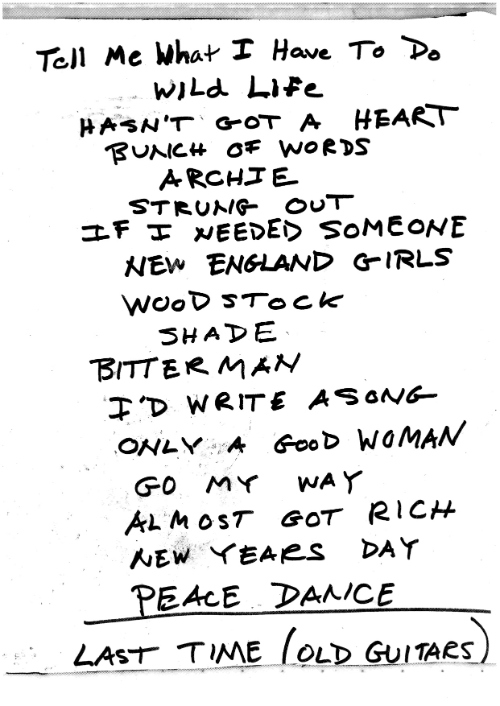 Tell Me What I Have To Do
WILD LIFE
HASN'T GOT A HEART
BUNCH OF WORDS
ARCHIE
STRUNG OUT
IF I NEEDED SOMEONE
NEW ENGLAND GIRLS
WOODSTOCK
SHADE
BITTER MAN
I'D WRITE A SONG
ONLY A GOOD WOMAN
GO MY WAY
ALMOST GOT RICH
NEW YEARS DAY
PEACE DANCE
LAST TIME (OLD GUITARS)